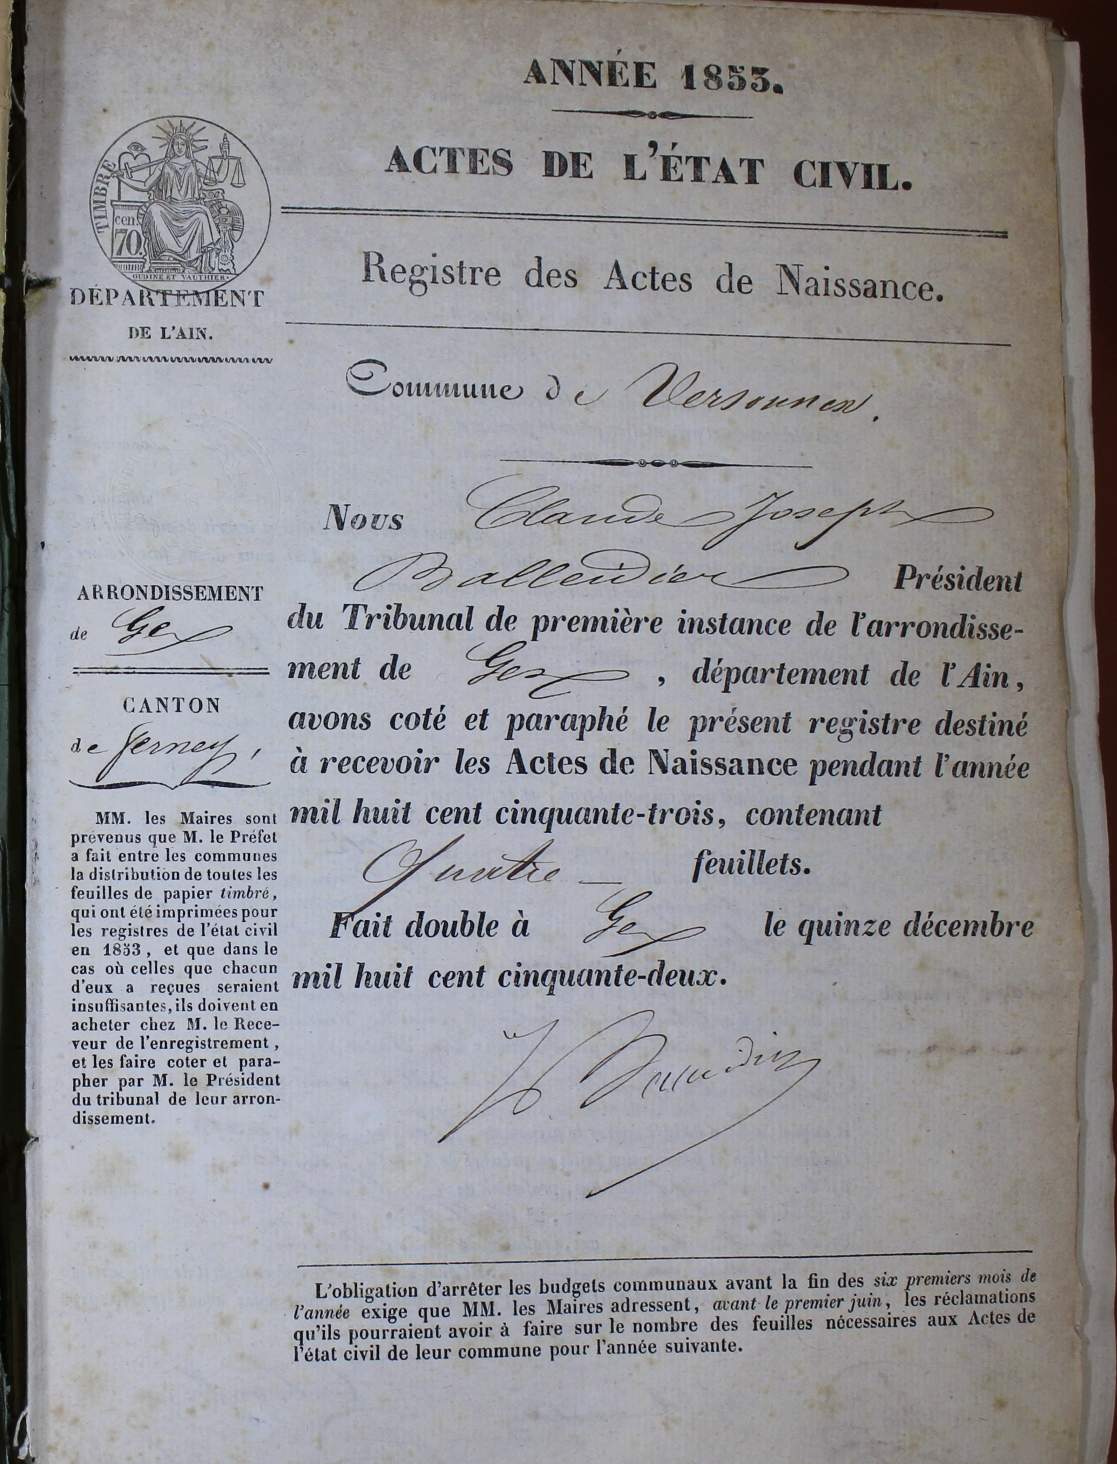 ANNÉE 1853.
ACTES DE L'ÉTAT CIVIL.
TIMBRE
cen.
70
OUDINÉ ET VAUTHIER
DÉPARTEMENT
DE L'AIN.
Registre des Actes de Naissance.
Commune de Versonnex.
Nous Claude Joseph
Balleidier Président
du Tribunal de première instance de l'arrondisse-
ment de Gex, département de l'Ain,
avons coté et paraphé le présent registre destiné
à recevoir les Actes de Naissance pendant l'année
mil huit cent cinquante-trois, contenant
Quatre feuillets.
Fait double à Gex le quinze décembre
mil huit cent cinquante-deux.
ARRONDISSEMENT
de Gex
CANTON
de Ferney,
MM. les Maires sont
prévenus que M. le Préfet
a fait entre les communes
la distribution de toutes les
feuilles de papier timbré,
qui ont été imprimées pour
les registres de l'état civil
en 1853, et que dans le
cas où celles que chacun
d'eux a reçues seraient
insuffisantes, ils doivent en
acheter chez M. le Rece-
veur de l'enregistrement,
et les faire coter et para-
pher par M. le Président
du tribunal de leur arron-
dissement.
L'obligation d'arrêter les budgets communaux avant la fin des six premiers mois de
l'année exige que MM. les Maires adressent, avant le premier juin, les réclamations
qu'ils pourraient avoir à faire sur le nombre des feuilles nécessaires aux Actes de
l'état civil de leur commune pour l'année suivante.